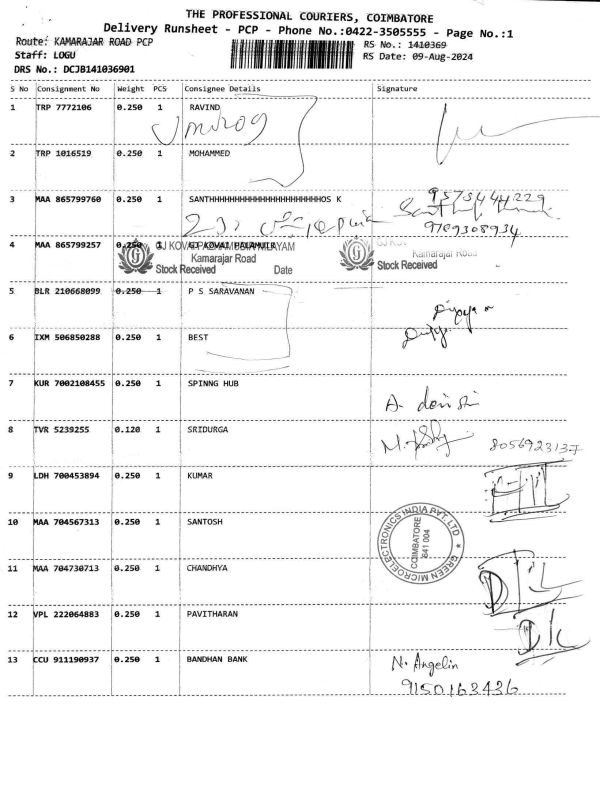 THE PROFESSIONAL COURIERS, COIMBATORE
Delivery Runsheet - PCP - Phone No.:0422-3505555 - Page No.:1
Route: KAMARAJAR ROAD PCP
RS No.: 1410369
Staff: LOGU
RS Date: 09-Aug-2024
DRS No.: DCJB141036901
S No Consignment No Weight PCS Consignee Details Signature
1 TRP 7772106 0.250 1 RAVIND
2 TRP 1016519 0.250 1 MOHAMMED
3 MAA 865799760 0.250 1 SANTHHHHHHHHHHHHHHHHHHHHHHHHOS K
9575444229
9789308934
4 MAA 865799257 0.250 1 GJ KOVAI PALAMUIR
Kamarajar Road
Stock Received Date
Kamarajar Road
Stock Received
5 BLR 210668099 0.250 1 P S SARAVANAN
6 IXM 506850288 0.250 1 BEST
7 KUR 7002108455 0.250 1 SPINNG HUB
A. devi sri
8 TVR 5239255 0.120 1 SRIDURGA
8056923137
9 LDH 700453894 0.250 1 KUMAR
10 MAA 704567313 0.250 1 SANTOSH
GREEN MICROELECTRONICS INDIA PVT. LTD
COIMBATORE
641 004
11 MAA 704730713 0.250 1 CHANDHYA
12 VPL 222064883 0.250 1 PAVITHARAN
13 CCU 911190937 0.250 1 BANDHAN BANK
N. Angelin
9150163436